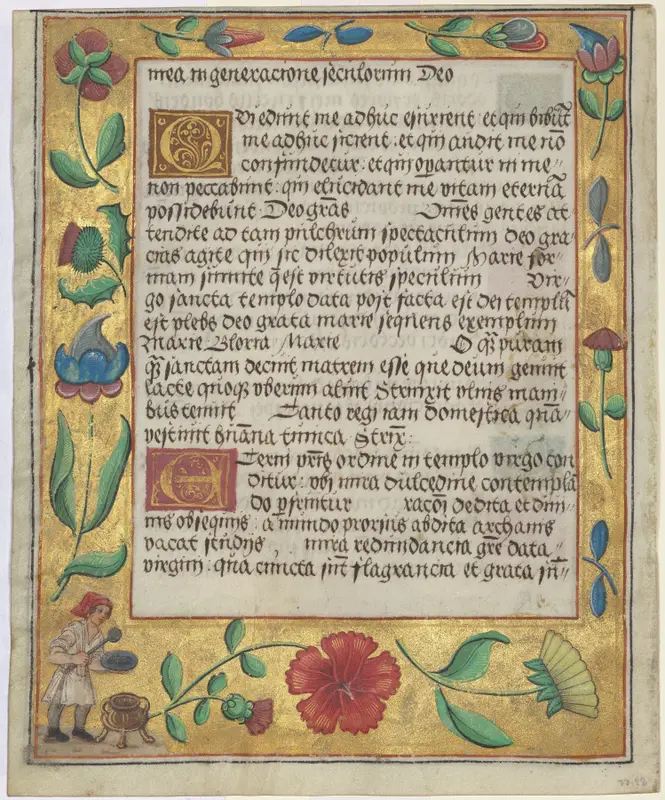 mea in generacione seculorum Deo
Qui edunt me adhuc esurient. et qui bibūt
me adhuc sicient. et qui audit me nō
confundetur. et qui operantur in me
non peccabunt. qui elucidant me vitam eternā
possidebunt. Deo grās Omnes gentes at
tendite ad tam pulchrum spectaculum deo gra
cias agite qui sic dilexit populum Marie for
mam sumite q̄ est virtutis speculum Vir
go sancta templo data post facta est dei templū
est plebs deo grata marie sequens exemplum
Marie Gloria Marie O q̄ puram
q̄ sanctam decuit matrem esse que deum genuit
lacte quoq₃ uberum aluit Strinxit ulnis mani
bus tenuit Tanto regi tam domestica quā
vestiuit hūana tunica Strix:
Eterni pr̄is ordine in templo virgo con
ditur: ubi mira dulcedine contemplā
do pascitur racōi dedita et diui
nis obsequiis: a mundo prorsus abdita archanis
vacat studiis, mira redundancia gr̄e data
virgini: qua cuncta sūt flagrancia et grata